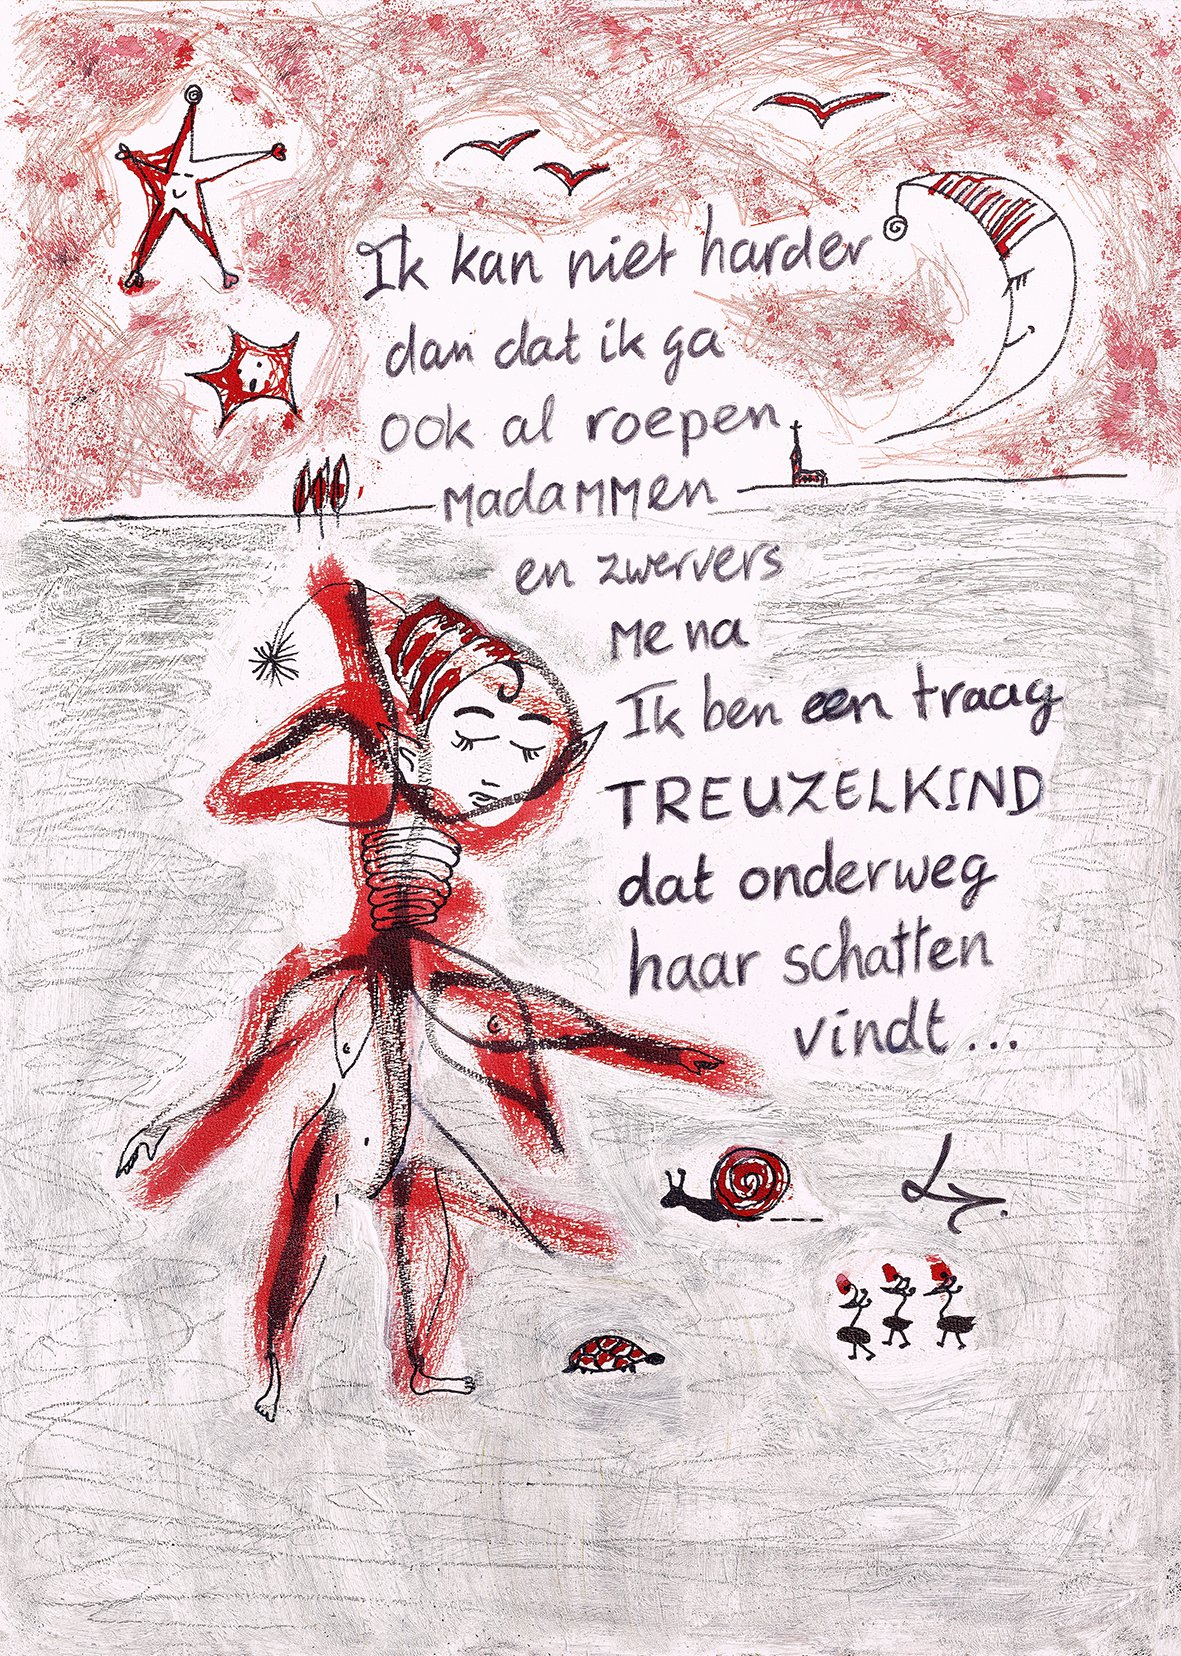 Ik kan niet harder
dan dat ik ga
ook al roepen
Madammen
en zwervers
me na
Ik ben een traag
TREUZELKIND
dat onderweg
haar schatten
vindt...